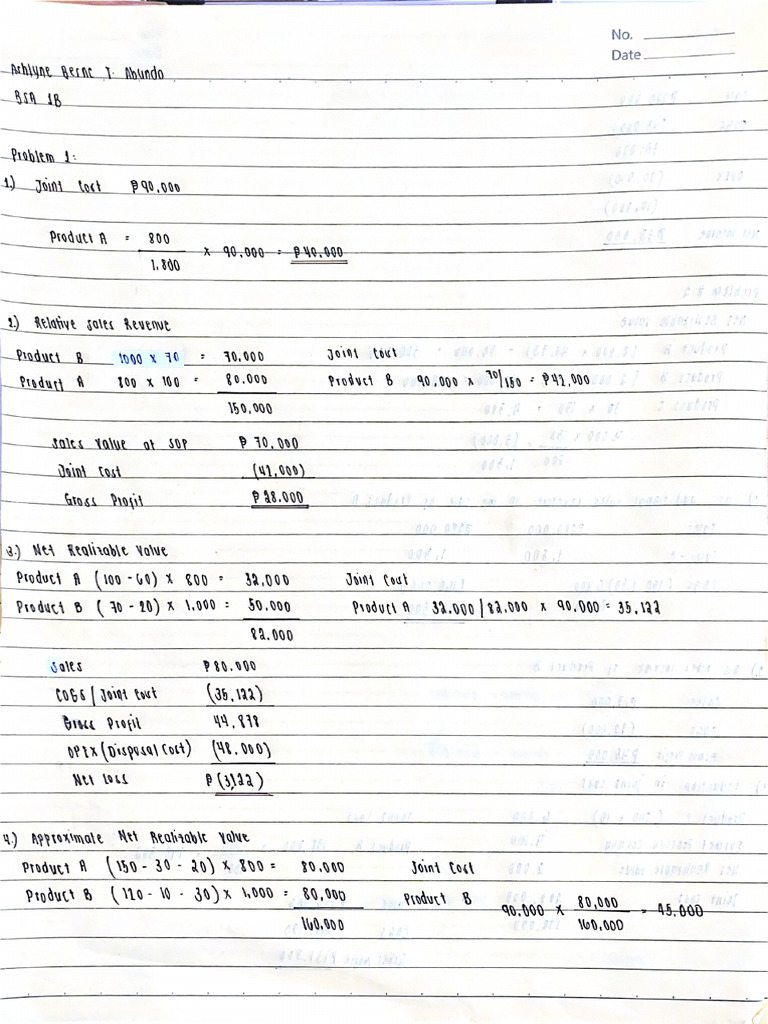 No.
Date
Ashlyne Bernc T. Abundo
BSA 1B
Problem 1:
1.) Joint Cost ₱90,000
Product A = 800 / 1,800 x 90,000 = ₱40,000
2.) Relative Sales Revenue
Product B 1000 x 70 = 70,000 Joint Cost
Product A 800 x 100 = 80,000 Product B 90,000 x 70/150 = ₱42,000
150,000
Sales Value at SOP ₱70,000
Joint Cost (42,000)
Gross Profit ₱28,000
3.) Net Realizable Value
Product A (100 - 60) x 800 = 32,000 Joint Cost
Product B (70 - 20) x 1,000 = 50,000 Product A 32,000 / 82,000 x 90,000 = 35,122
82,000
Sales ₱80,000
COGS / Joint Cost (35,122)
Gross Profit 44,878
OPEX (Disposal Cost) (48,000)
Net Loss ₱(3,122)
4.) Approximate Net Realizable Value
Product A (150 - 30 - 20) x 800 = 80,000 Joint Cost
Product B (120 - 10 - 30) x 1,000 = 80,000 Product B 90,000 x 80,000 / 160,000 = 45,000
160,000